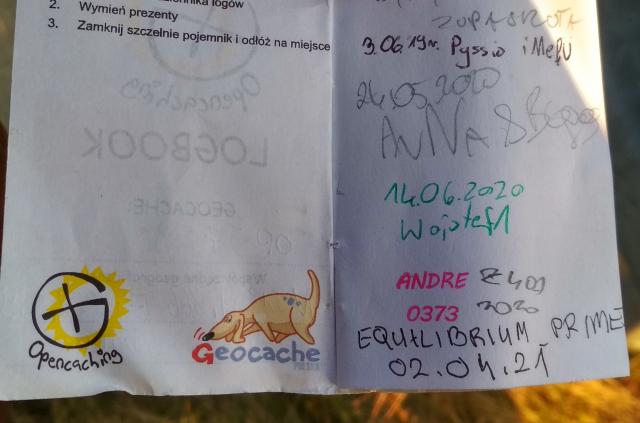 dziennika logów
2. Wymień prezenty
3. Zamknij szczelnie pojemnik i odłóż na miejsce
Opencaching
LOGBOOK
GEOCACHE:
Opencaching
Geocache
POLSKA
ZUPASZKOTA
3.06.19r. Pyssio i Mefju
24.05.2020
ANNA &
14.06.2020
Wojtef1
ANDRE Z409
0373 2020
EQUILIBRIUM PRIME
02.04.21